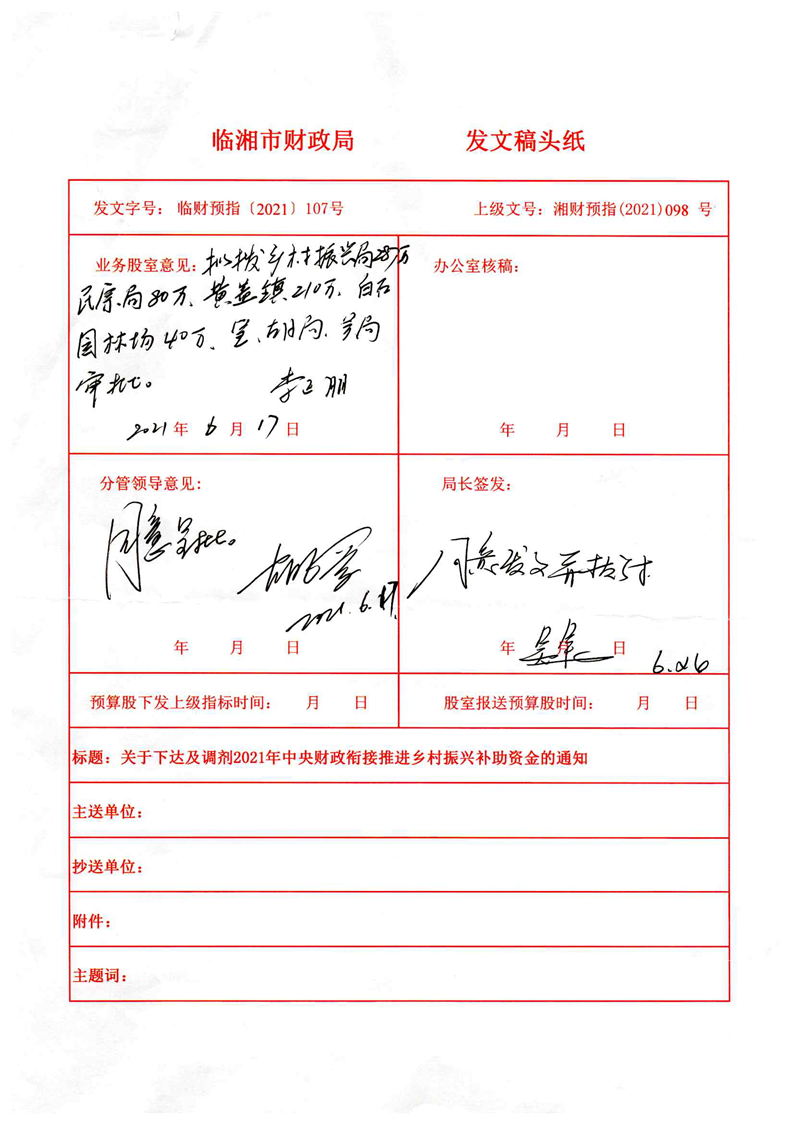 临湘市财政局 发文稿头纸
发文字号： 临财预指〔2021〕107号 上级文号：湘财预指(2021)098 号
业务股室意见：拟拨乡村振兴局285万
民宗局80万、黄盖镇210万、白石
园林场40万、呈、胡局、吴局
审批。 李正朋
2021年 6月 17日
办公室核稿：
年 月 日
分管领导意见：
同意呈批。
2021.6.17.
年 月 日
局长签发：
同意发文并拨付
年 月 日
6.26
预算股下发上级指标时间： 月 日 股室报送预算股时间： 月 日
标题：关于下达及调剂2021年中央财政衔接推进乡村振兴补助资金的通知
主送单位：
抄送单位：
附件：
主题词：